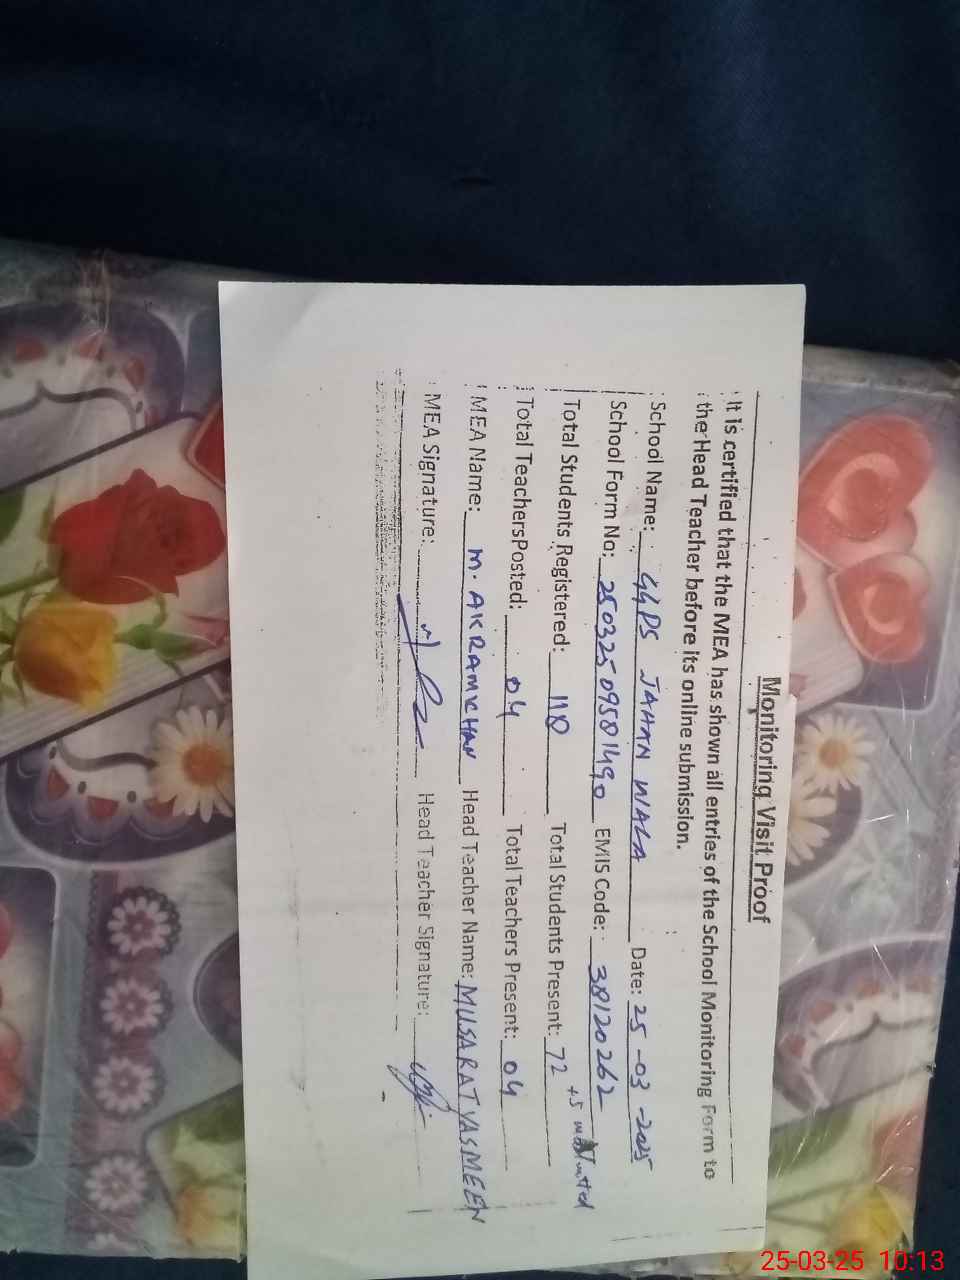 Monitoring Visit Proof
It is certified that the MEA has shown all entries of the School Monitoring Form to
the Head Teacher before its online submission.
School Name: GGPS JAHAN WALA Date: 25-03-2025
School Form No: 25032509581490 EMIS Code: 38120262
Total Students Registered: 118 Total Students Present: 72 +5
Total TeachersPosted: 04 Total Teachers Present: 04
MEA Name: M. AKRAM KHAN Head Teacher Name: MUSARAT YASMEEN
MEA Signature: Head Teacher Signature:
25-03-25 10:13